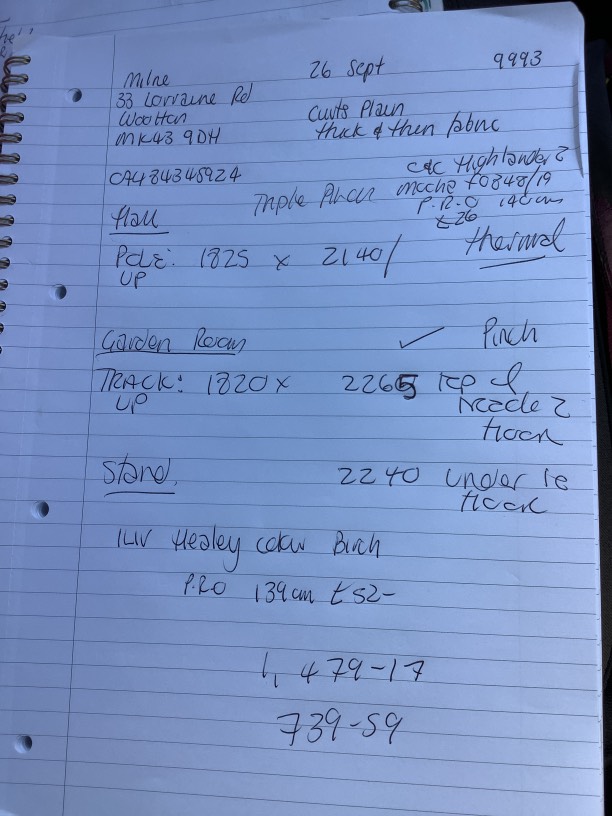 Milne 26 Sept 9993
33 Lorraine Rd
Wootton Cuvts Plain
MK43 9DH thick & then fabric
C&C Highlander 2
Triple Pinch mocha F0848/19
P.R.O 140cm
£26
Hall thermal
Pole: 1825 x 2140/
UP
Garden Room ✓ Pinch
TRACK: 1820 x 2265 top of
UP Needle 2
Hook
Stand. 2240 under
Hook
ILIV Healey colour Birch
P.RO 139cm £52-
1,479-17
739-59